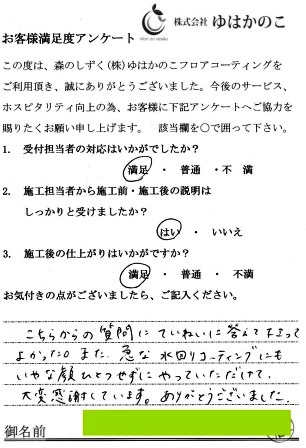 Mori no shizuku
株式会社 ゆはかのこ
お客様満足度アンケート
この度は、森のしずく(株)ゆはかのこフロアコーティングを
ご利用頂き、誠にありがとうございました。今後のサービス、
ホスピタリティ向上の為、お客様に下記アンケートへご協力を
賜りたくお願い申し上げます。 該当欄を○で囲って下さい。
1. 受付担当者の対応はいかがでしたか?
満足 ・ 普通 ・不 満
2. 施工担当者から施工前・施工後の説明は
しっかりと受けましたか?
はい ・ いいえ
3. 施工後の仕上がりはいかがですか?
満足 ・ 普通 ・ 不満
お気付きの点がございましたら、ご記入ください。
こちらからの質問にていねいに答えて下さって
よかった。また、急な水回りコーティングにも
いやな顔ひとつせずにやっていただけて、
大変感謝しています。ありがとうございました。
御名前